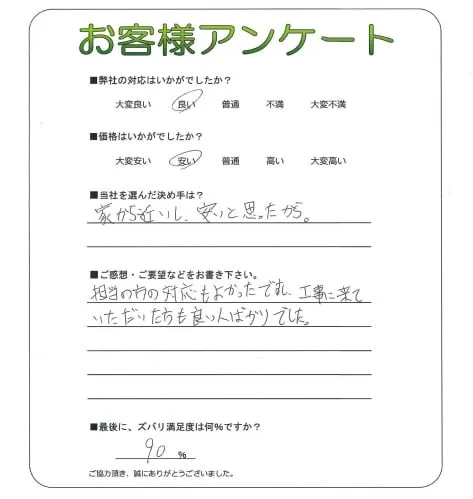 お客様アンケート
■弊社の対応はいかがでしたか？
大変良い 良い 普通 不満 大変不満
■価格はいかがでしたか？
大変安い 安い 普通 高い 大変高い
■当社を選んだ決め手は？
家から近いし、安いと思ったから。
■ご感想・ご要望などをお書き下さい。
担当の方の対応もよかったですし、工事に来て
いただいた方も良い人ばかりでした。
■最後に、ズバリ満足度は何%ですか？
90 %
ご協力頂き、誠にありがとうございました。